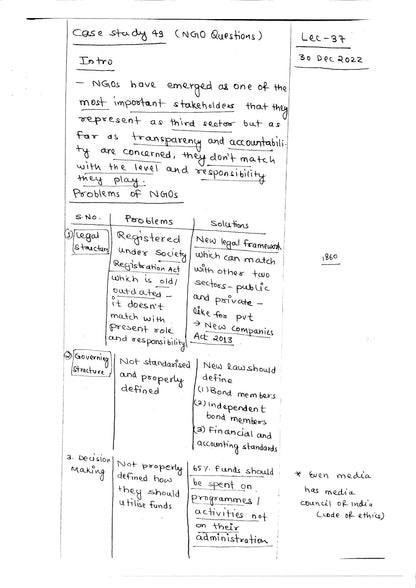 Case study 49 (NGO Questions)
Lec-37
30 Dec 2022
Intro
- NGOs have emerged as one of the
most important stakeholders that they
represent as third sector but as
far as transparency and accountabili-
ty are concerned, they don't match
with the level and responsibility
they play.
Problems of NGOs
S.No. Problems Solutions
① Legal Structure
Registered
under Society
Registration Act
which is old/
outdated -
it doesn't
match with
present role
and responsibility
New legal framework
which can match
with other two
sectors - public
and private -
like for pvt
→ New Companies
Act 2013
1860
② Governing
Structure
Not standarised
and properly
defined
New law should
define
(1) Bond members
(2) Independent
bond members
(3) Financial and
accounting standards
3. Decision
Making
Not properly
defined how
they should
utilise funds
65% funds should
be spent on
programmes/
activities not
on their
administration
* Even media
has media
council of India
(code of ethics)